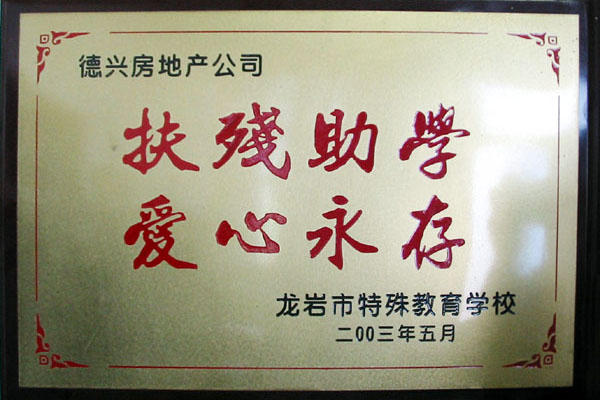 德兴房地产公司
扶殘助學
愛心永存
龙岩市特殊教育学校
二00三年五月